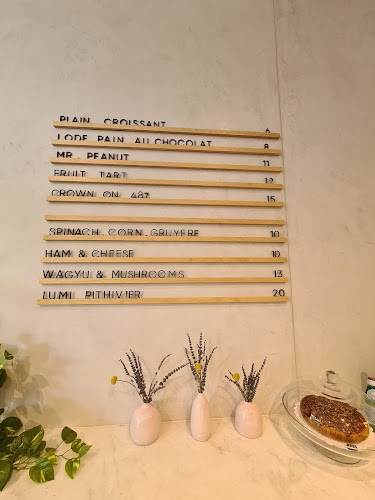 PLAIN CROISSANT 6
LODE PAIN AU CHOCOLAT 8
MR. PEANUT 11
FRUIT TART 12
CROWN ON 487 15
SPINACH, CORN, GRUYERE 10
HAM & CHEESE 10
WAGYU & MUSHROOMS 13
LUMI PITHIVIER 20